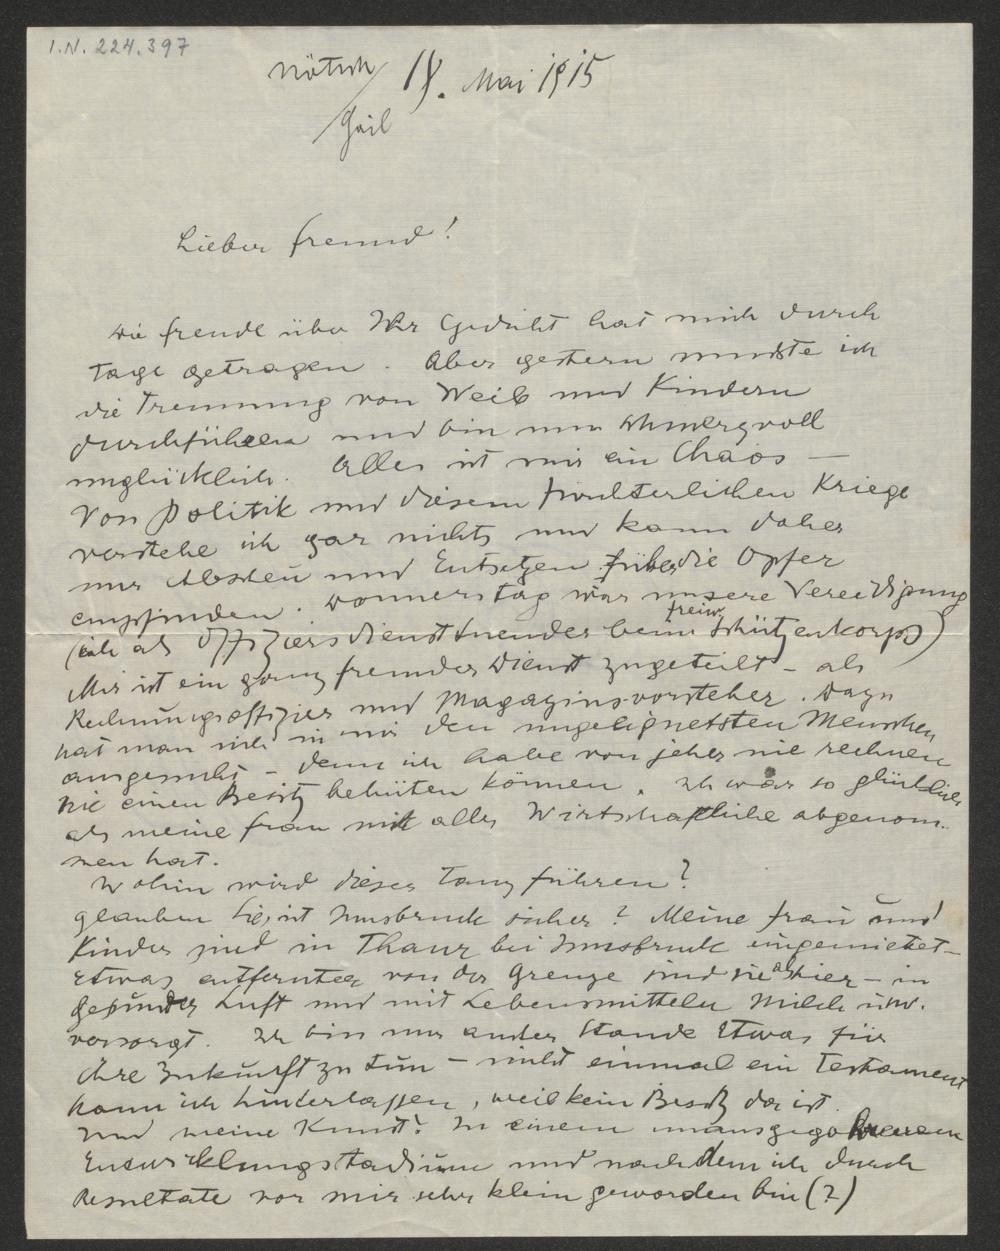 I.N. 224.397
Nötsch/ 18. Mai 1915
Gail
Lieber Freund!
Die Freude über Ihr Gedicht hat mich durch
Tage getragen. Aber gestern mußte ich
die Trennung von Weib und Kindern
durchführen und bin nun schmerzvoll
unglücklich. Alles ist mir ein Chaos —
Von Politik und diesem fürchterlichen Kriege
verstehe ich gar nichts und kann daher
nur Abscheu und Entsetzen für die Opfer
empfinden. Donnerstag war unsere Vereidigung
(ich als Offiziersdiensttuender beim freiw. Schützenkorps)
Mir ist ein ganz fremder Dienst zugeteilt – als
Rechnungsoffizier und Magazinsvorsteher. Dazu
hat man sich in mir den ungeeignetsten Menschen
ausgesucht – denn ich habe von jeher nie rechnen
nie einen Besitz behüten können. Ich war so glücklich
als meine Frau mir alles Wirtschaftliche abgenom-
men hat.
Wohin wird dieser Tanz führen?
Glauben Sie, ist Innsbruck sicher? Meine Frau und
Kinder sind in Thaur bei Innsbruck eingemietet –
Etwas entfernter von der Grenze sind sie als hier – in
gesunder Luft und mit Lebensmitteln Milch usw.
versorgt. Ich bin nun außer Stande Etwas für
ihre Zukunft zu tun – nicht einmal ein Testament
kann ich hinterlassen, weil kein Besitz da ist.
Und meine Kunst? In einem unausgegohrenen
Entwicklungsstadium und nachdem ich durch
Resultate vor mir sehr klein geworden bin (?)